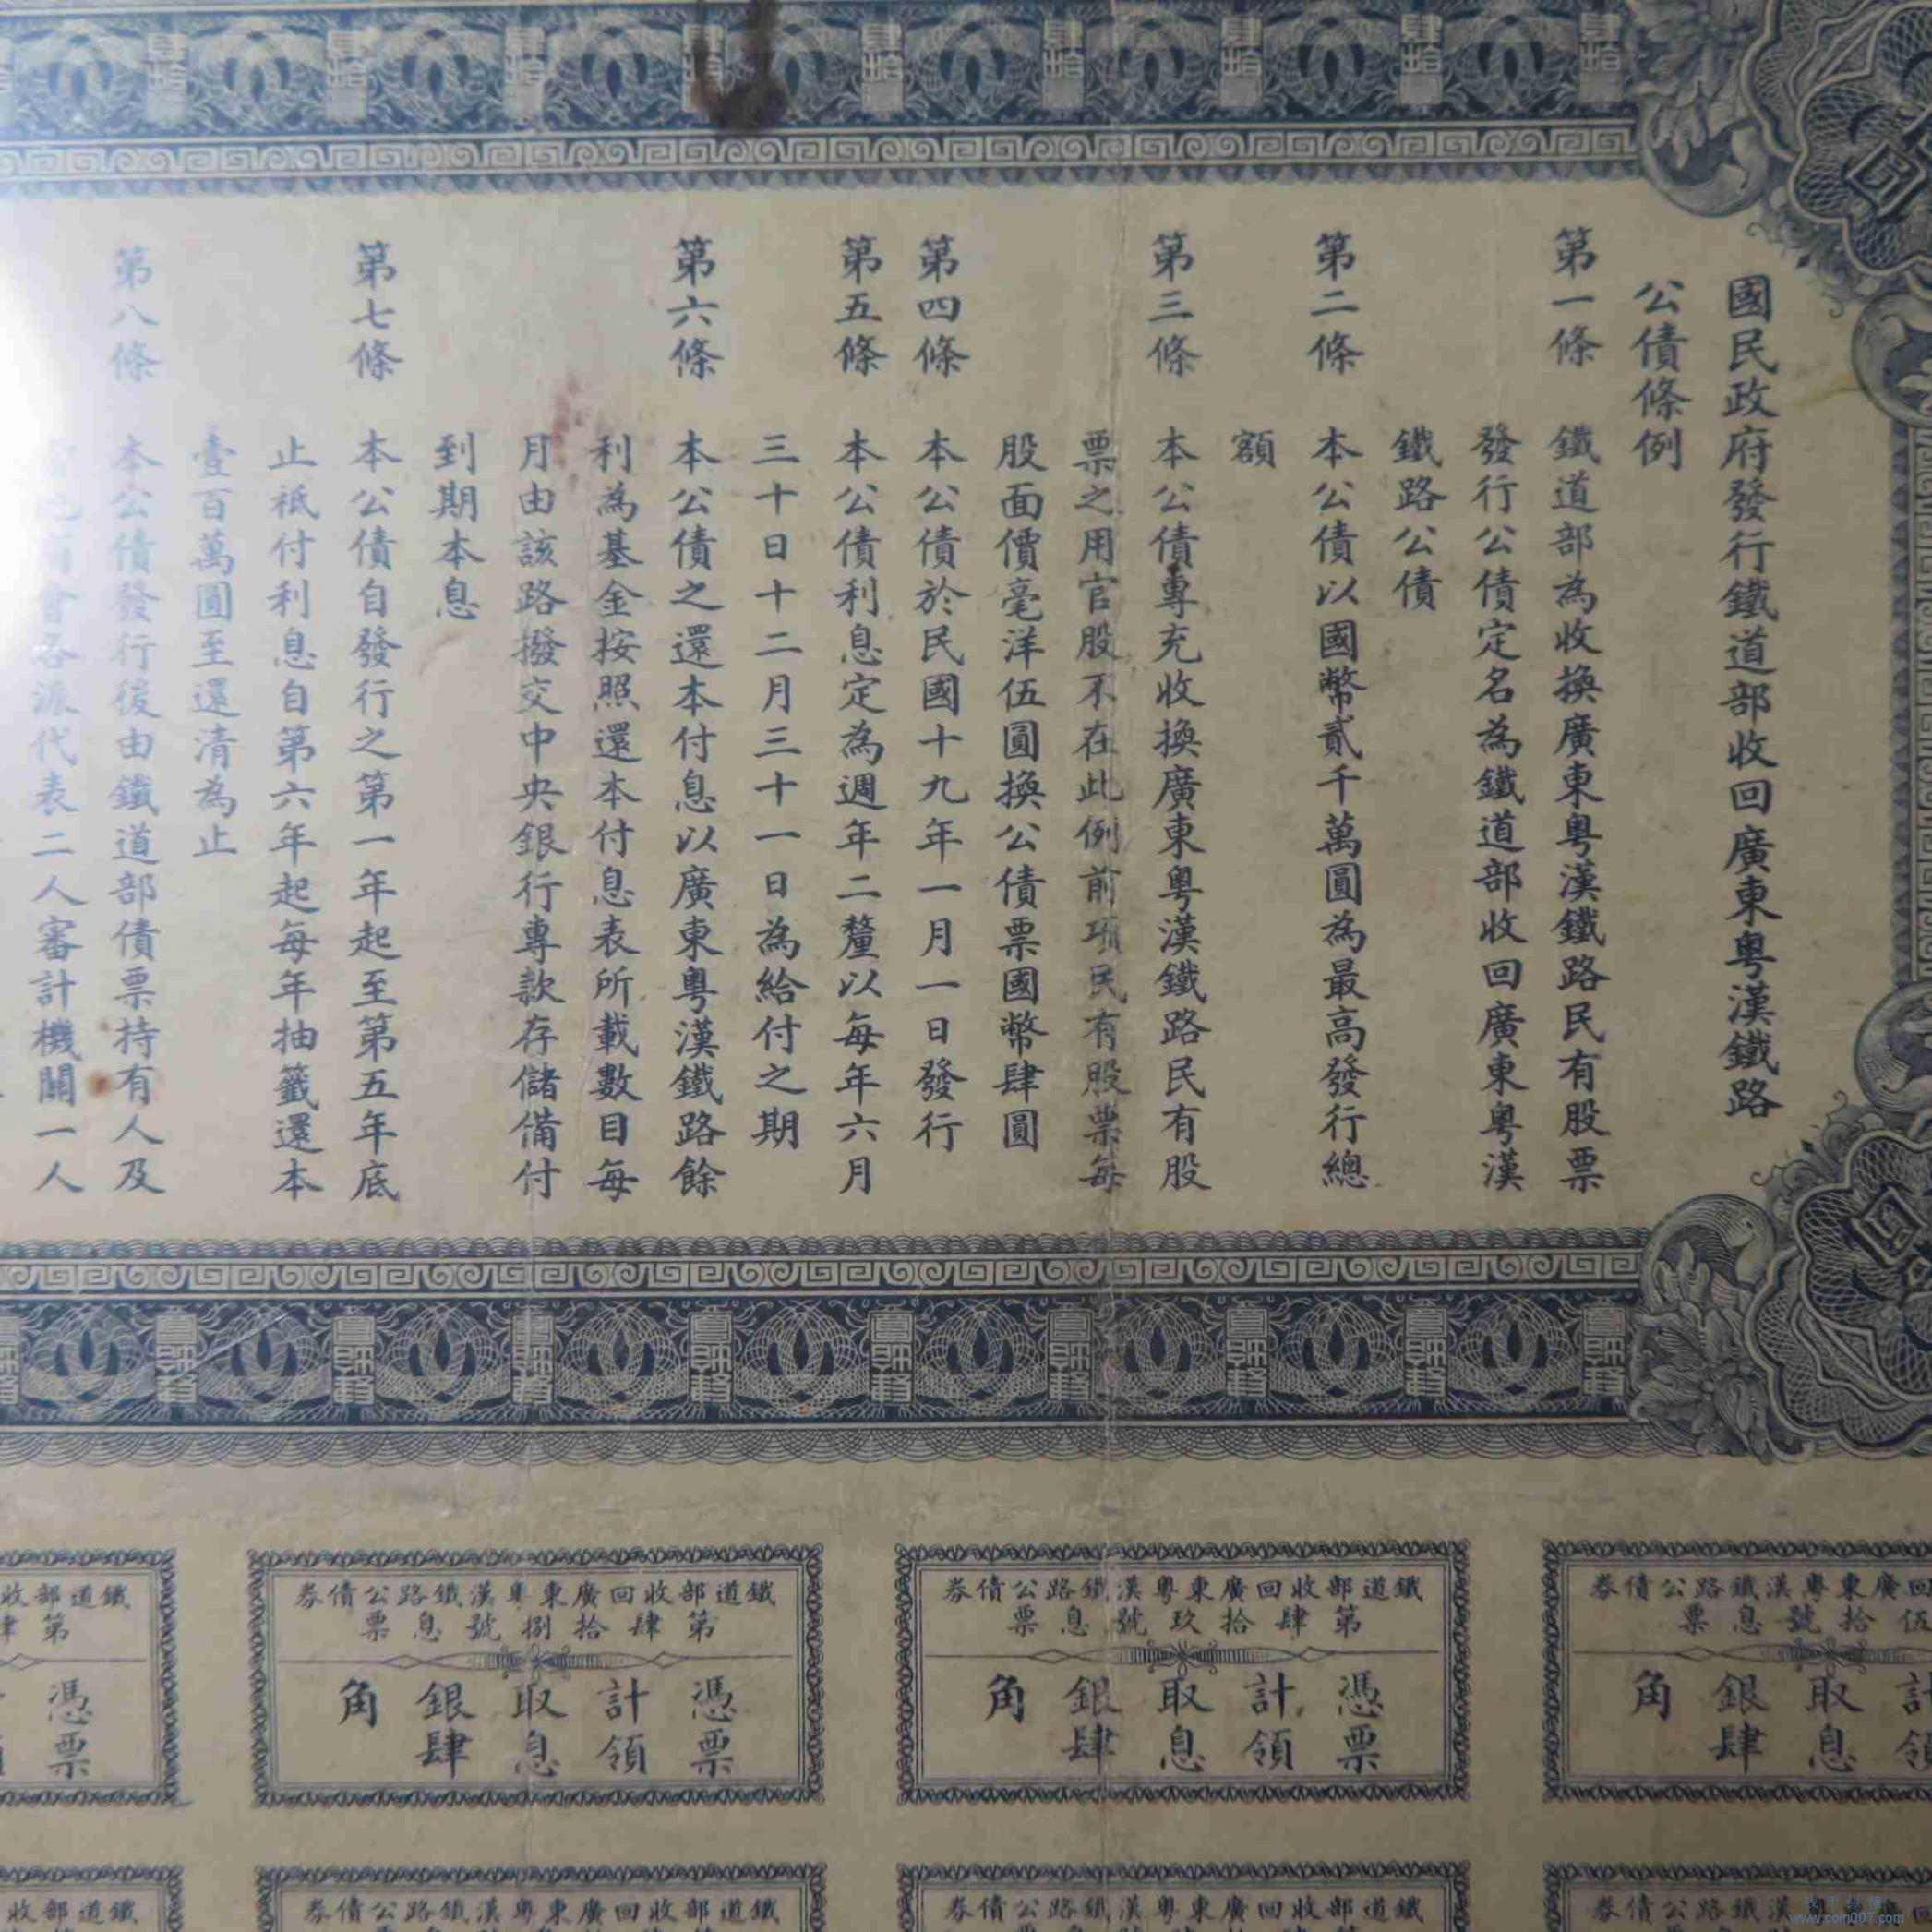 國民政府發行鐵道部收回廣東粵漢鐵路
公債條例
第一條 鐵道部為收換廣東粵漢鐵路民有股票
發行公債定名為鐵道部收回廣東粵漢
鐵路公債
第二條 本公債以國幣貳千萬圓為最高發行總
額
第三條 本公債專充收換廣東粵漢鐵路民有股
票之用官股不在此例前項民有股票每
股面價毫洋伍圓換公債票國幣肆圓
第四條 本公債於民國十九年一月一日發行
第五條 本公債利息定為週年二釐以每年六月
三十日十二月三十一日為給付之期
第六條 本公債之還本付息以廣東粵漢鐵路餘
利為基金按照還本付息表所載數目每
月由該路撥交中央銀行專款存儲備付
到期本息
第七條 本公債自發行之第一年起至第五年底
止祇付利息自第六年起每年抽籤還本
壹百萬圓至還清為止
第八條 本公債發行後由鐵道部債票持有人及
會各派代表二人審計機關一人
圓
圓
廣東粵漢鐵路公債券
伍拾號息票
計取銀角
領息肆
鐵道部收回廣東粵漢鐵路公債券
第肆拾玖號息票
憑計取銀角
票領息肆
鐵道部收回廣東粵漢鐵路公債券
第肆拾捌號息票
憑計取銀角
票領息肆
鐵道部收
第肆
憑
票
鐵道部收回廣東粵漢鐵路公債券
鐵道部收回廣東粵漢鐵路公債券
鐵道部收
www.coin007.com